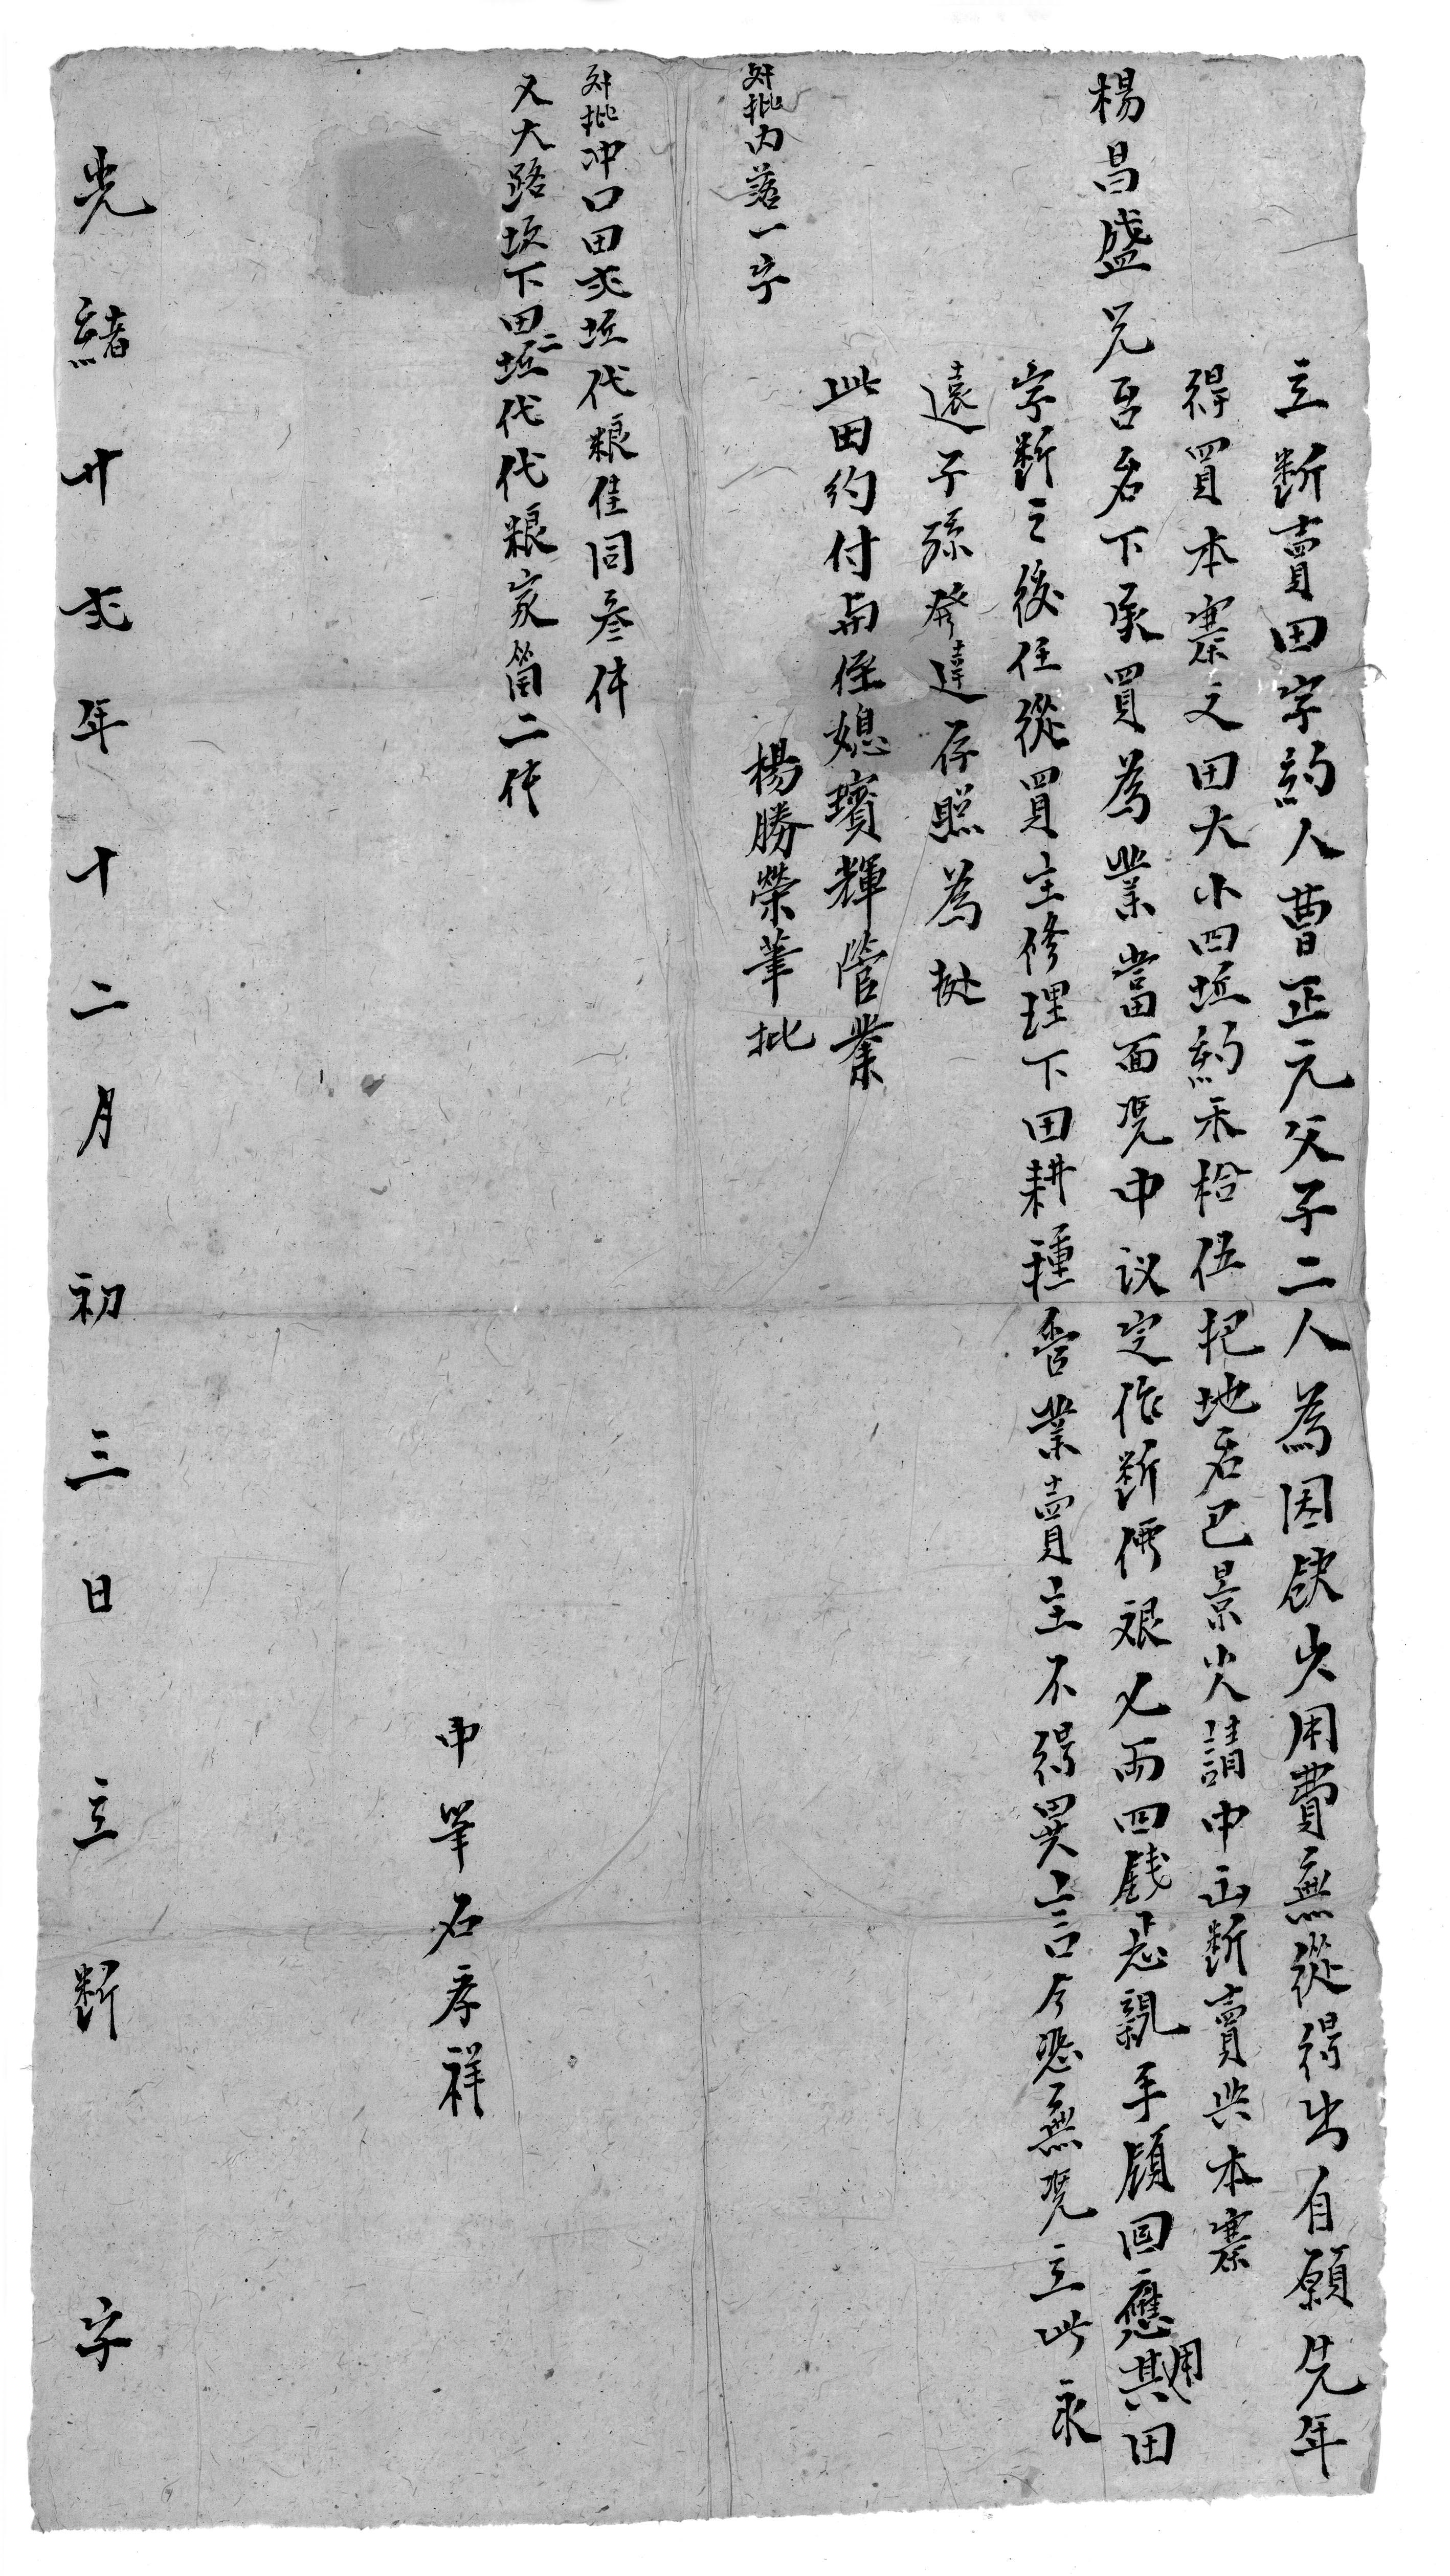 立斷賣田字約人曹正元父子二人為因缺少用費無從得出自願先年
得買本寨之田大小四坵約禾拾伍把地名巴景火請中出斷賣與本寨
楊昌盛兄台名下承買為業當面凴中议定作斷價艮乂兩四錢正親手領回應用其田
字斷之後任從買主修理下田耕種管業賣主不得異言今恐無凴立此永
遠子孫發達存照為拠
此田约付与侄媳璸輝管業
楊勝榮筆批
外批内落一字
外批冲口田弍坵代粮佳同叁仟
又大路坎下田二坵代代粮家笛二仟
中筆石彦祥
光緒廿弍年十二月初三日立斷字